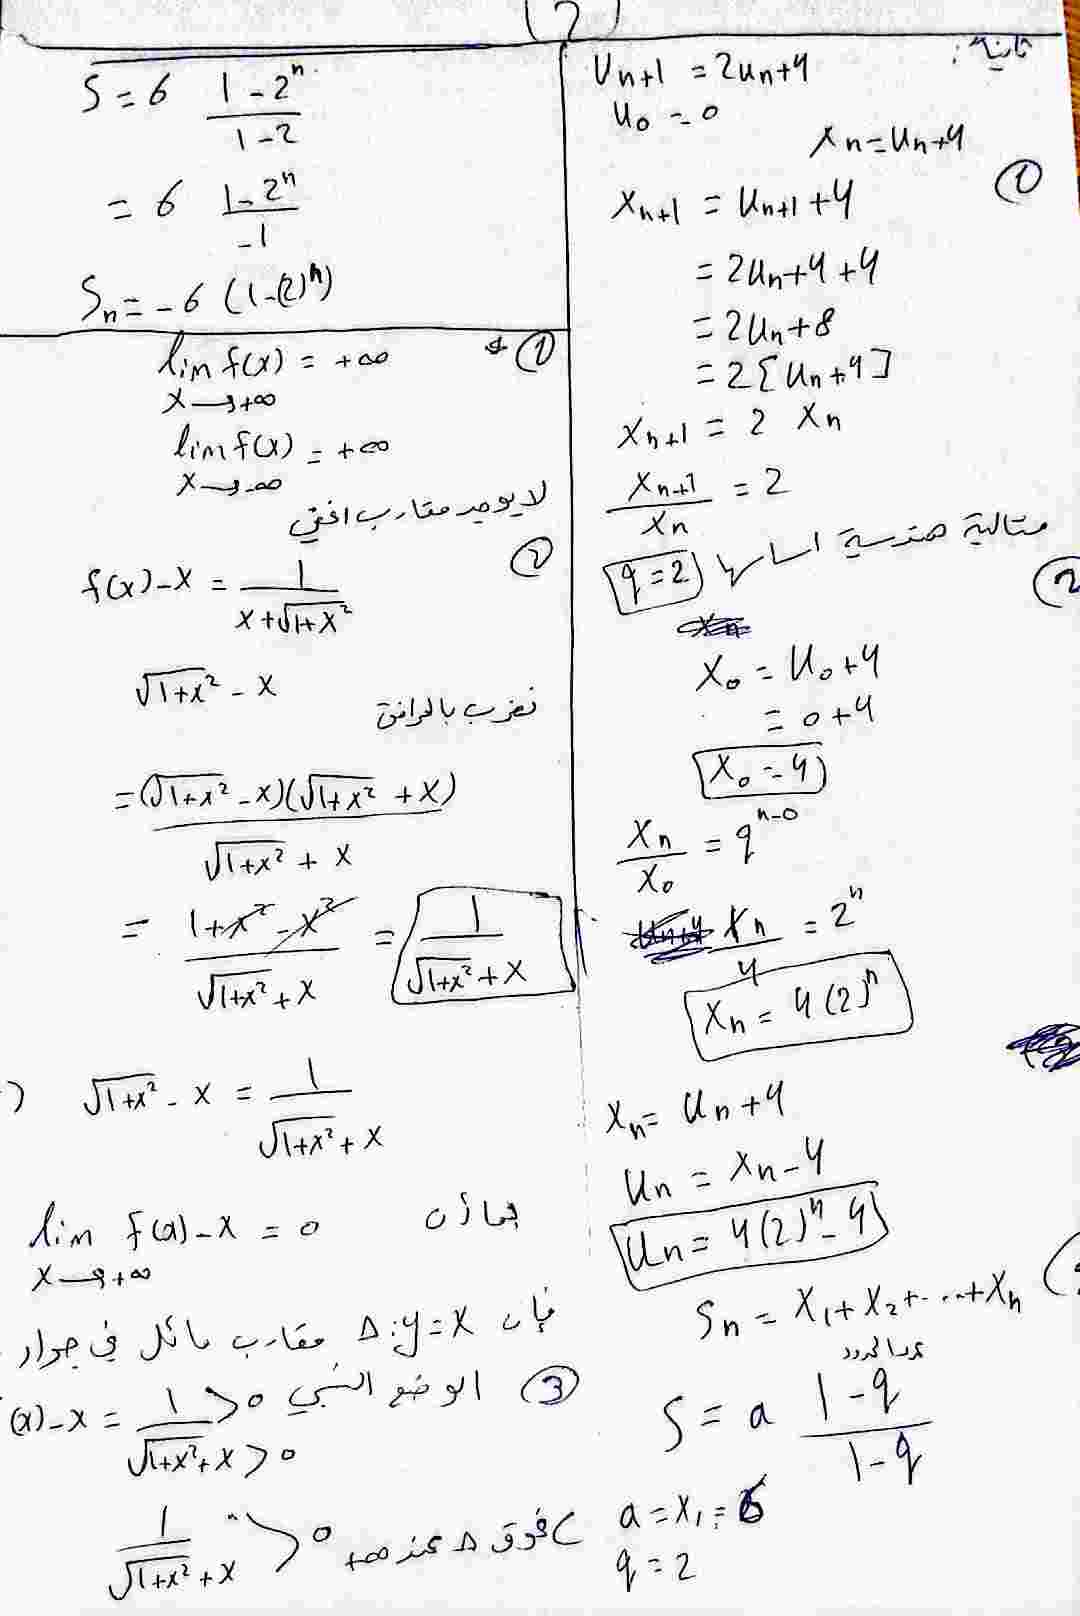 (2)
ثانية:
U_{n+1} = 2u_n+4
u_0 = 0
x_n = u_n+4
①
x_{n+1} = u_{n+1} + 4
= 2u_n+4+4
= 2u_n+8
= 2[u_n+4]
x_{n+1} = 2 x_n
\frac{x_{n+1}}{x_n} = 2
متتالية هندسية اساسها q=2
②
x_0 = u_0+4
= 0+4
x_0 = 4
\frac{x_n}{x_0} = q^{n-0}
\frac{x_n}{4} = 2^n
x_n = 4(2)^n
x_n = u_n+4
u_n = x_n-4
u_n = 4(2)^n-4
S_n = x_1+x_2+....+x_n
عدد الحدود
S = a \frac{1-q}{1-q}
a = x_1 = 6
q = 2
S = 6 \frac{1-2^n}{1-2}
= 6 \frac{1-2^n}{-1}
S_n = -6 (1-(2)^n)
①
lim f(x) = +∞
x→+∞
lim f(x) = +∞
x→-∞
لا يوجد مقارب افقي
②
f(x)-x = \frac{1}{x+√(1+x²)}
√(1+x²) - x
نضرب بالمرافق
= \frac{(√(1+x²) - x)(√(1+x²) + x)}{√(1+x²) + x}
= \frac{1+x²-x²}{√(1+x²)+x} = \frac{1}{√(1+x²)+x}
) √(1+x²) - x = \frac{1}{√(1+x²)+x}
بما أن
lim f(x)-x = 0
x→+∞
فإن Δ:y=x مقارب مائل في جوار
③ الوضع النسبي
(x)-x = \frac{1}{√(1+x²)+x>0} >0
\frac{1}{√(1+x²)+x} > 0
C فوق Δ عند +∞